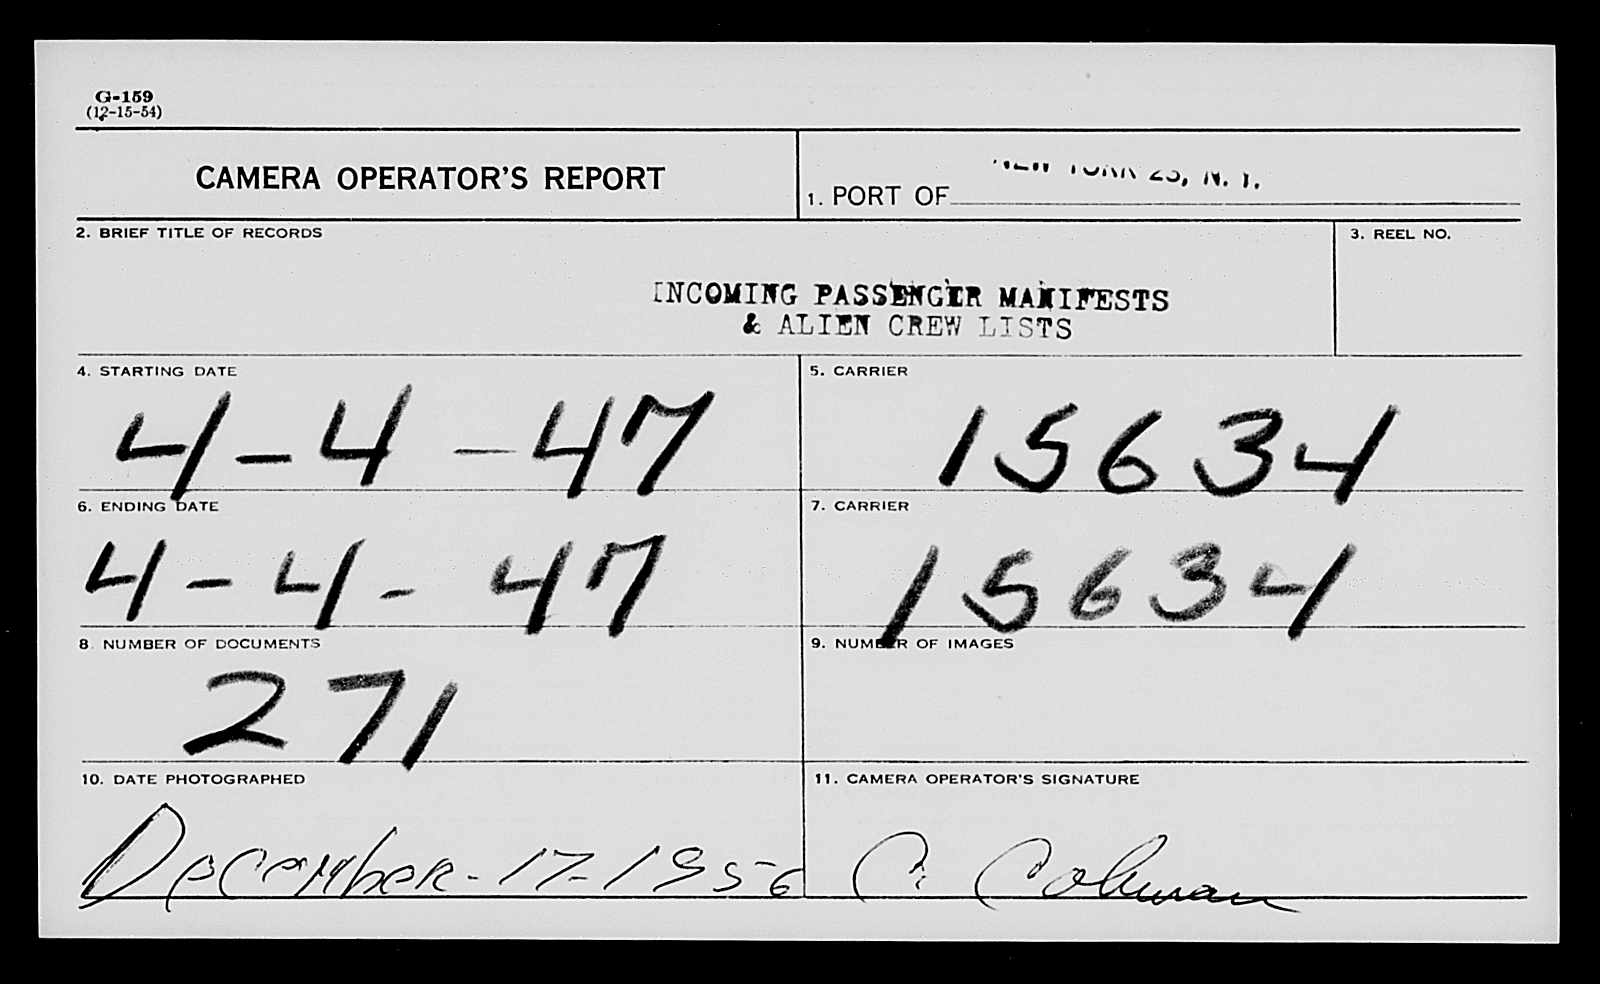 G-159
(12-15-54)
CAMERA OPERATOR'S REPORT
1. PORT OF NEW YORK 23, N. Y.
2. BRIEF TITLE OF RECORDS
3. REEL NO.
INCOMING PASSENGER MANIFESTS
& ALIEN CREW LISTS
4. STARTING DATE
5. CARRIER
4-4-47
15634
6. ENDING DATE
7. CARRIER
4-4-47
15634
8. NUMBER OF DOCUMENTS
9. NUMBER OF IMAGES
271
10. DATE PHOTOGRAPHED
11. CAMERA OPERATOR'S SIGNATURE
December-17-1956
C.